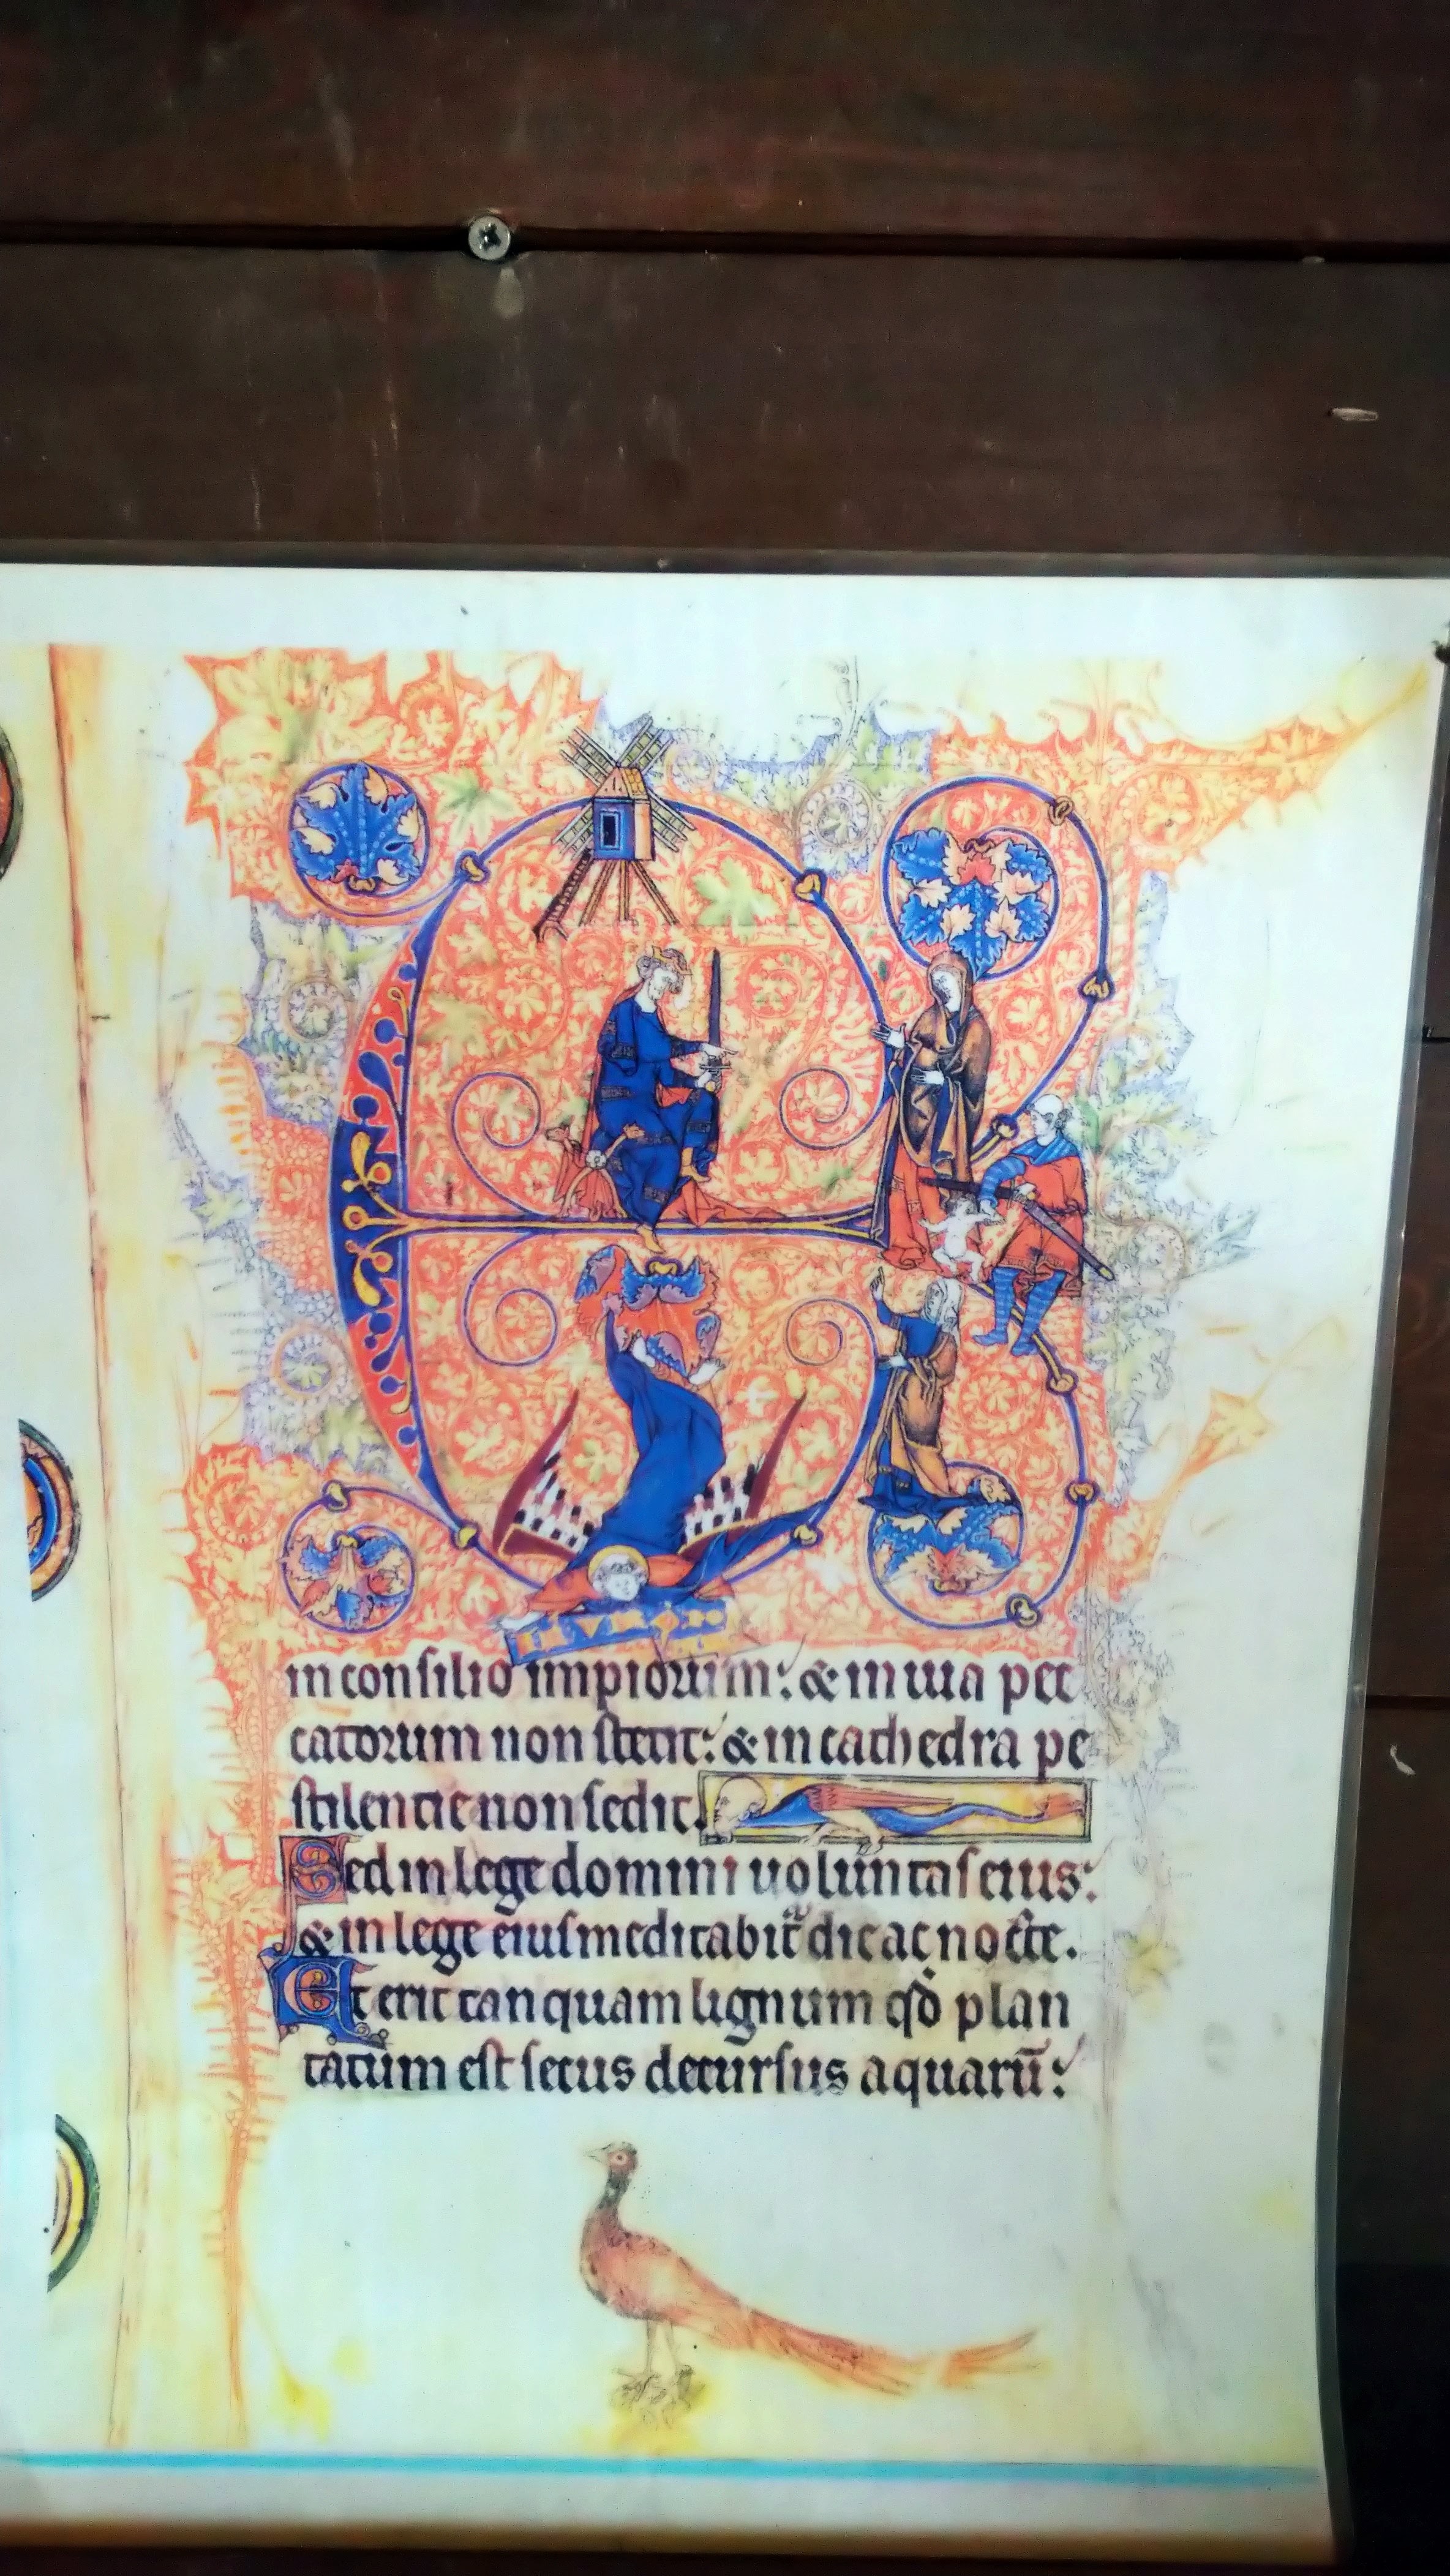 in consilio impiorum: & in uia pec
catorum non stetit: & in cathedra pe
stilentie non sedit.
Sed in lege domini uoluntas eius:
& in lege eius meditabit' die ac nocte.
Et erit tanquam lignum qd plan
tatum est secus decursus aquarū: